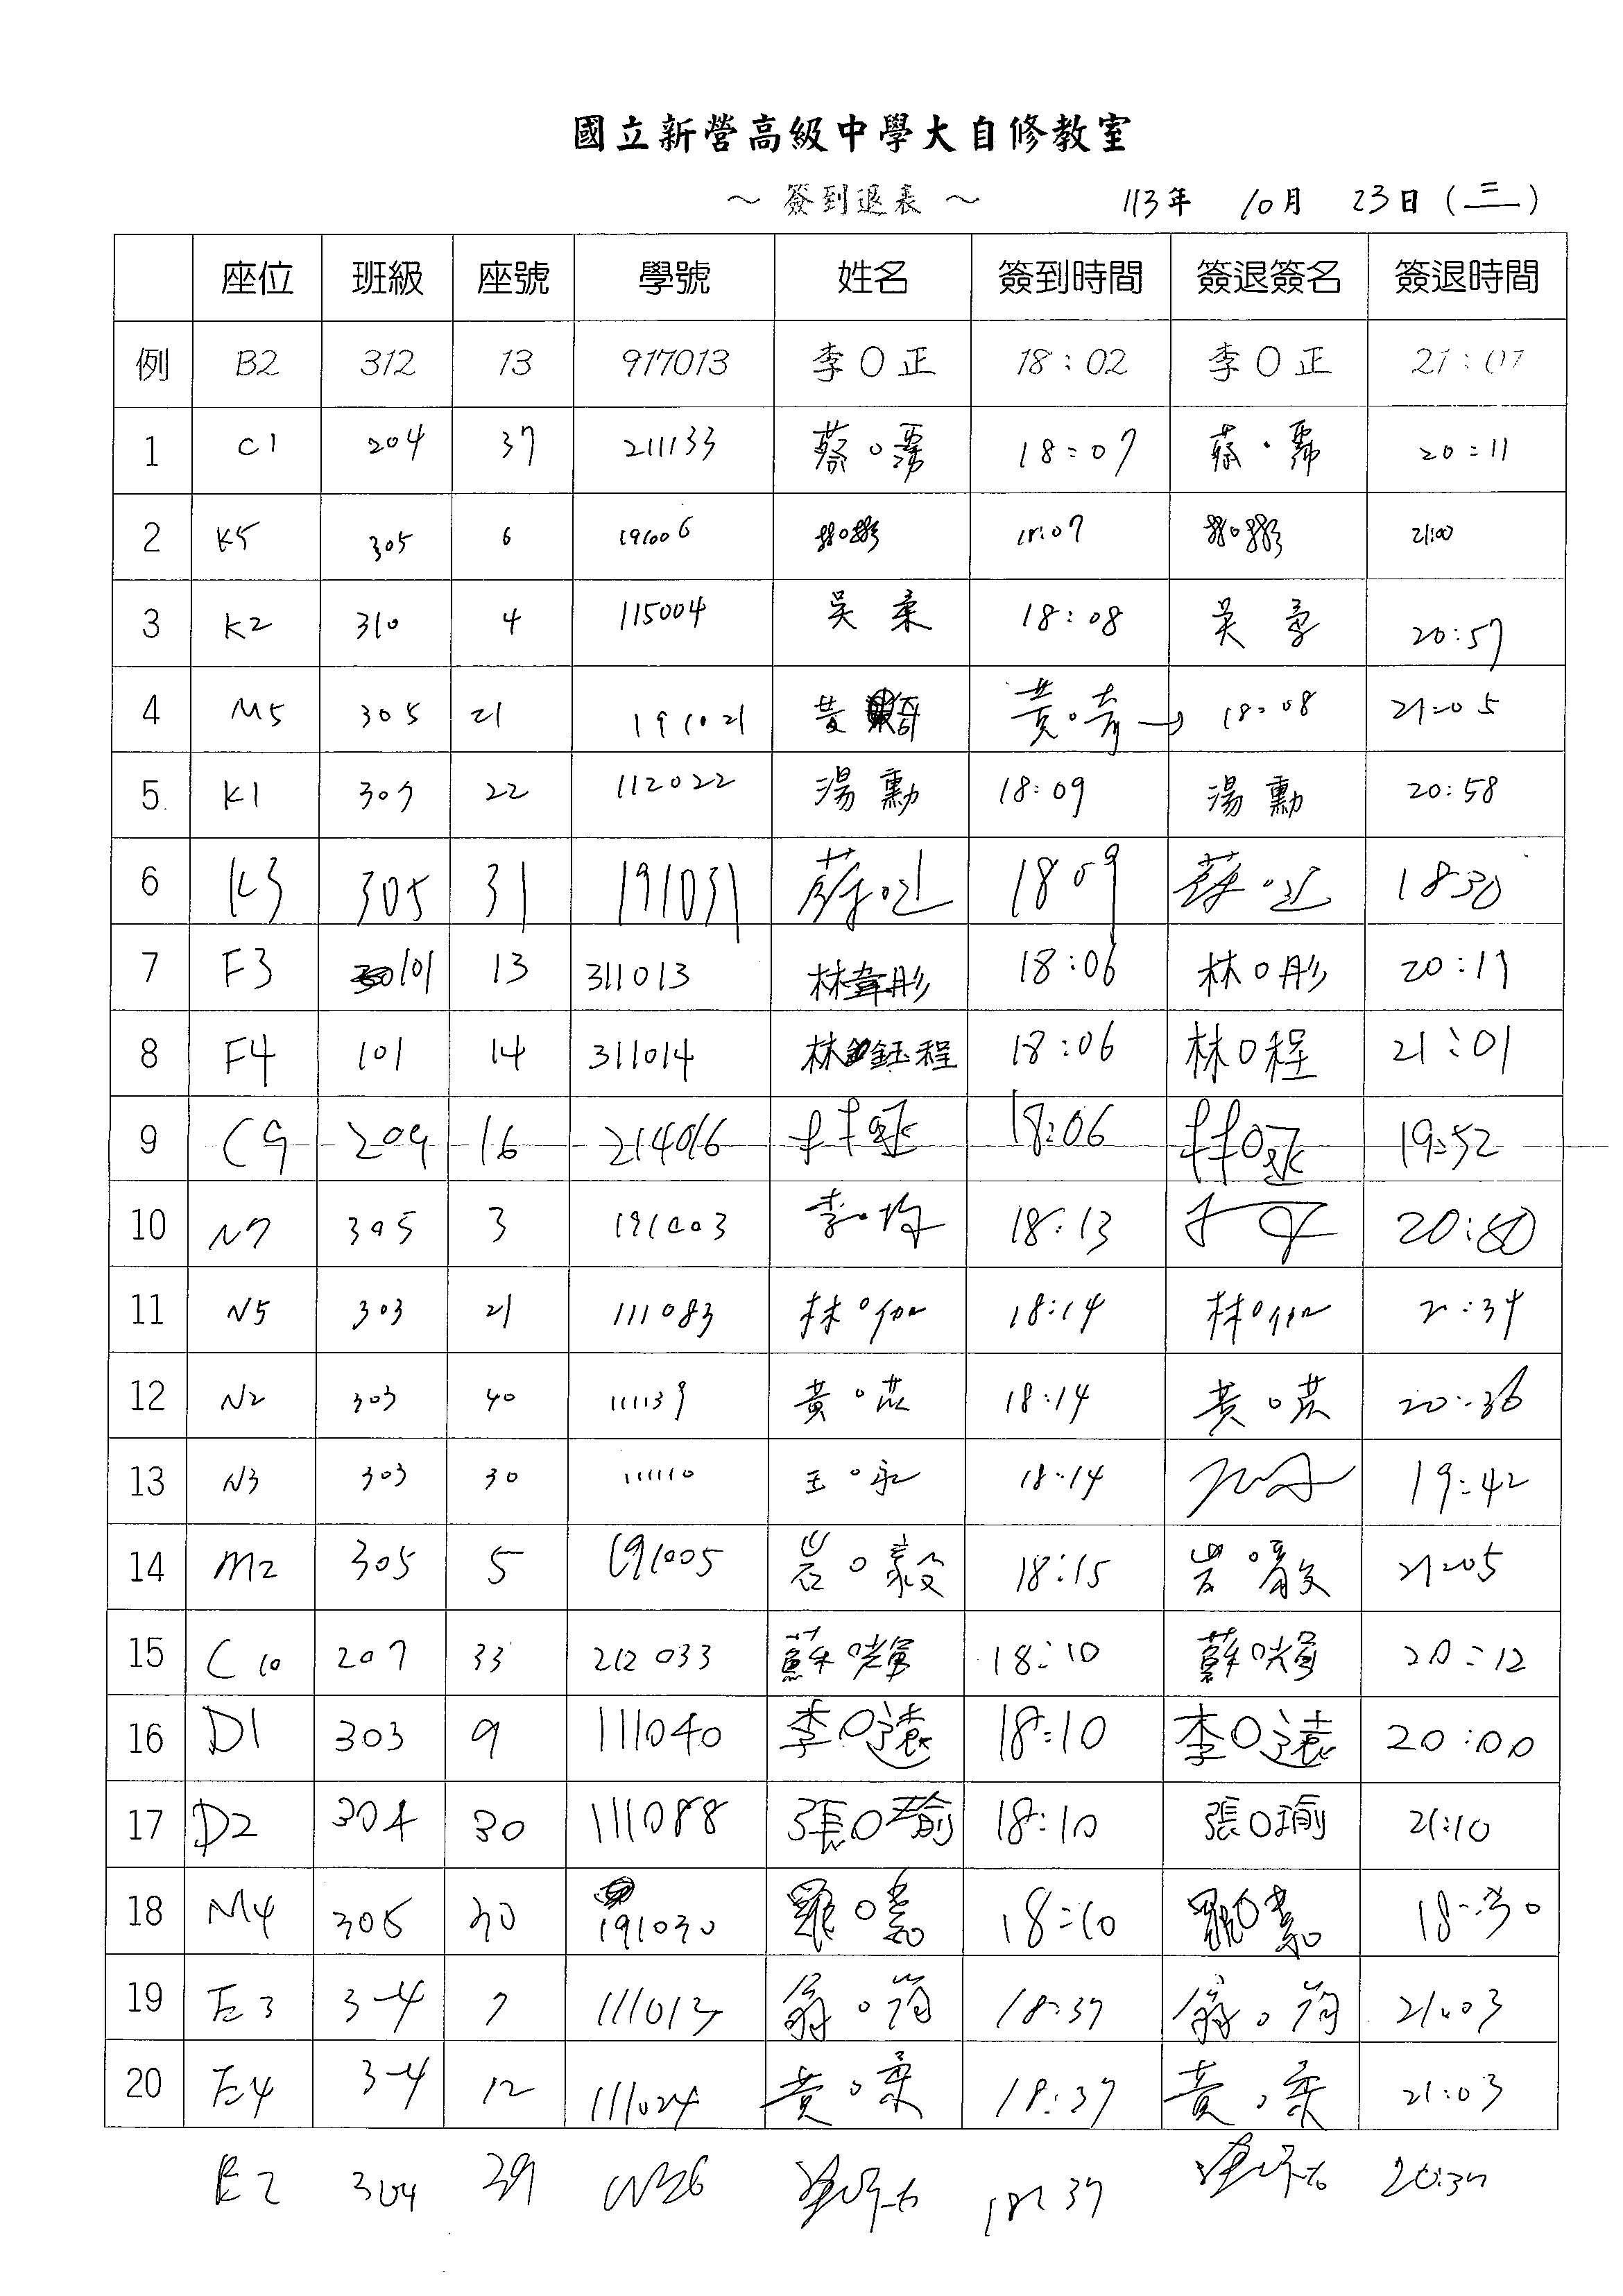 國立新營高級中學大自修教室
～ 簽到退表 ～ 113年 10月 23日 (三)
座位 班級 座號 學號 姓名 簽到時間 簽退簽名 簽退時間
例 B2 312 13 917013 李O正 18:02 李O正 21:07
1 C1 204 37 211133 蔡 18:07 蔡 20:11
2 K5 305 6 191006 18:07 21:00
3 K2 310 4 115004 吳 柔 18:08 吳 20:57
4 M5 305 21 191021 黃 黃 → 18:08 21:05
5. K1 307 22 112022 湯 勳 18:09 湯 勳 20:58
6 K3 305 31 191031 18 09 1830
7 F3 101 13 311013 林韋彤 18:06 林O彤 20:19
8 F4 101 14 311014 林鈺程 18:06 林O程 21:01
9 C9 209 16 214016 18:06 19:52
10 N7 305 3 191003 李 18:13 20:50
11 N5 303 21 111083 林 18:14 林
12 N2 303 40 111139 黃 18:14 黃 20:36
13 N3 303 30 111110 王o永 18:14 19:42
14 M2 305 5 191005 岩O毅 18:15 岩 21:05
15 C10 207 33 212033 蘇O輝 18:10 蘇O輝 20:12
16 D1 303 9 111040 李O遠 18:10 李O遠 20:00
17 D2 304 30 111088 張O瑜 18:10 張O瑜 21:10
18 M4 305 30 191030 羅O嘉 18:10 羅O嘉 18:30
19 E3 3-4 7 111013 翁o筠 18:37 翁o筠 21:03
20 E4 3-4 12 111024 黃o柔 18:37 黃o柔 21:03
E2 304 29 18:37 20:37